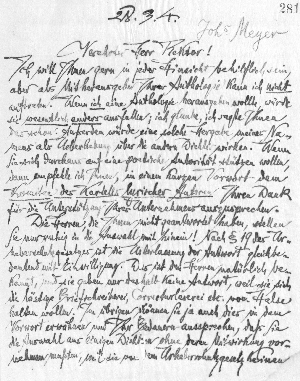 281
Joh. Meyer
Verehrter Herr Rektor!
Ich will Ihnen gern in jeder Hinsicht behilflich sein,
aber als Mitherausgeber Ihrer Anthologie kann ich nicht
auftreten. Wenn ich eine Anthologie herausgeben wollte, würde
sie wesentlich anders ausfallen; ich glaube, ich sagte Ihnen
das schon. Außerdem würde eine solche Hergabe meines Na-
mens als Ueberhebung über die andern Dichter wirken. Wenn
Sie sich durchaus auf eine poetische Autorität stützen wollen,
dann empfehle ich Ihnen, in einem kurzen Vorwort dem
Vorsitzenden des Kartells lyrischer Autoren Ihren Dank
für die Unterstützung Ihres Unternehmens auszusprechen.
Die Herren, die Ihnen nicht geantwortet haben, stellen
Sie nur ruhig in die Auswahl mit hinein! Nach § 19 des Ur-
heberrechtsgesetzes ist die Unterlassung der Antwort gleichbe-
deutend mit Einwilligung. Das ist den Herren natürlich be-
kannt, und sie geben nur deshalb keine Antwort, weil sie sich
die lästige Briefschreiberei, Correcturleserei etc. vom Halse
halten wollen. Im übrigen können Sie ja auch dies in dem
Vorwort erwähnen und Ihr Bedauern aussprechen, daß Sie
die Auswahl aus einigen Dichtern ohne deren Mitwirkung vor-
nehmen mußten, weil sie von dem Urheberschutzgesetz keinen